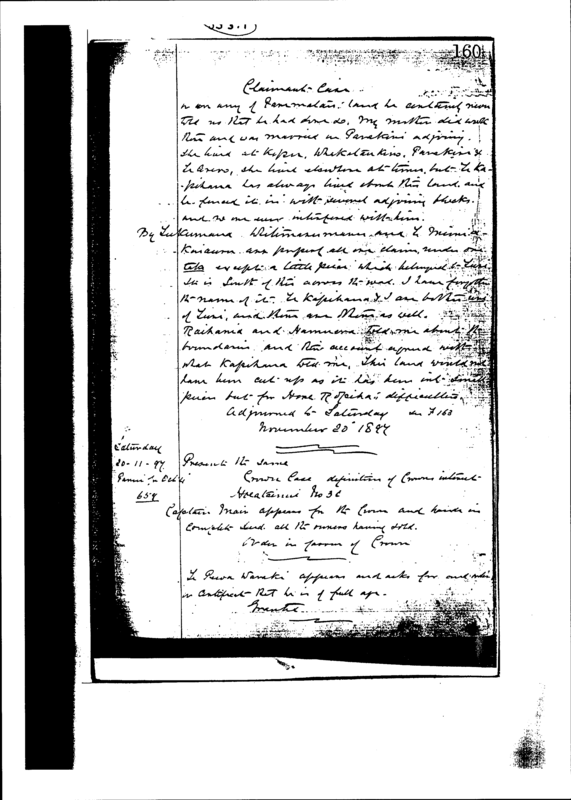 160
Claimants Case
or on any of land he
told me that he had done so. My mother did with
this and was married on Parakiri adjoining.
She lived at Whakatankino, Parakiri &
she lived elsewhere at times, but Te Ka-
pihana has always lived about this land and
he fenced it in with several adjoining blocks.
and no one ever interfered with him.
By Tukumana and Te
are proper all one claim under one
take except a little piece which belonged to Turi
It is South of this across the road. I have forgotten
the name of it. Te Kapihana & I are both
of Turi, and there are others as well.
Raihania and told me about the
boundaries and this account agreed with
what Kapihana told me. This land would not
have been cut up as it has been into small
pieces but for Hone difficulties.
Adjourned to Saturday see F 163
November 20th 1897
Saturday
20-11-97
Present the same
657
Crown Case definition of Crowns interest
No 3C
Captain Mair appears for the Crown and hands in
complete deed all the owners having sold.
Order in favour of Crown
Te Puwa appears and asks for
or Certificate that he is of full age.
Granted